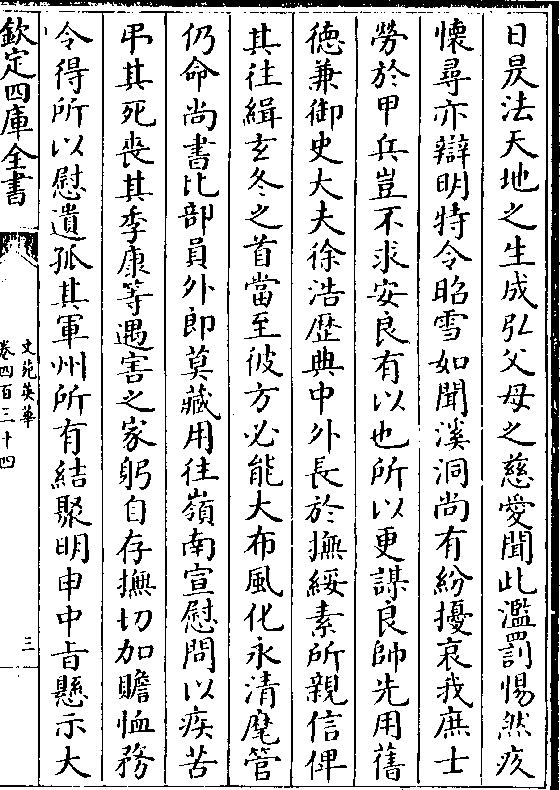 日昃法天地之生成弘父母之慈愛聞此濫罰惕然疚
懷尋亦辯明特令昭雪如聞溪洞尚有紛擾哀我庶士
勞於甲兵豈不求安良有以也所以更謀良帥先用舊
徳兼御史大夫徐浩歴典中外長於撫綏素所親信俾
其往緝玄冬之首當至彼方必能大布風化永清麾管
仍命尚書比部員外郎莫藏用往嶺南宣慰問以疾苦
弔其死喪其季康等遇害之家躬自存撫切加贍恤務
令得所以慰遺孤其軍州所有結聚明申中旨懸示大
欽定四庫全書
文苑英華
卷四百三十四
三